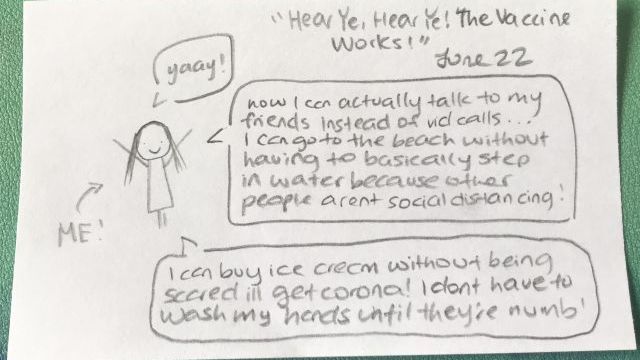 "Hear Ye, Hear Ye! The Vaccine
Works!"
June 22
yaay!
now I can actually talk to my
friends instead of vid calls...
I can go to the beach without
having to basically step
in water because other
people arent social distancing!
ME!
I can buy ice cream without being
scared ill get corona! I dont have to
wash my hands until they're numb!